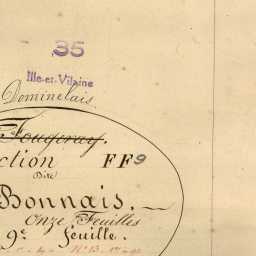 35
Ille-et-Vilaine
Dominelais.
Fougeray.
ction FF9
Dite
Bonnais.
Onze Feuilles
9e feuille.